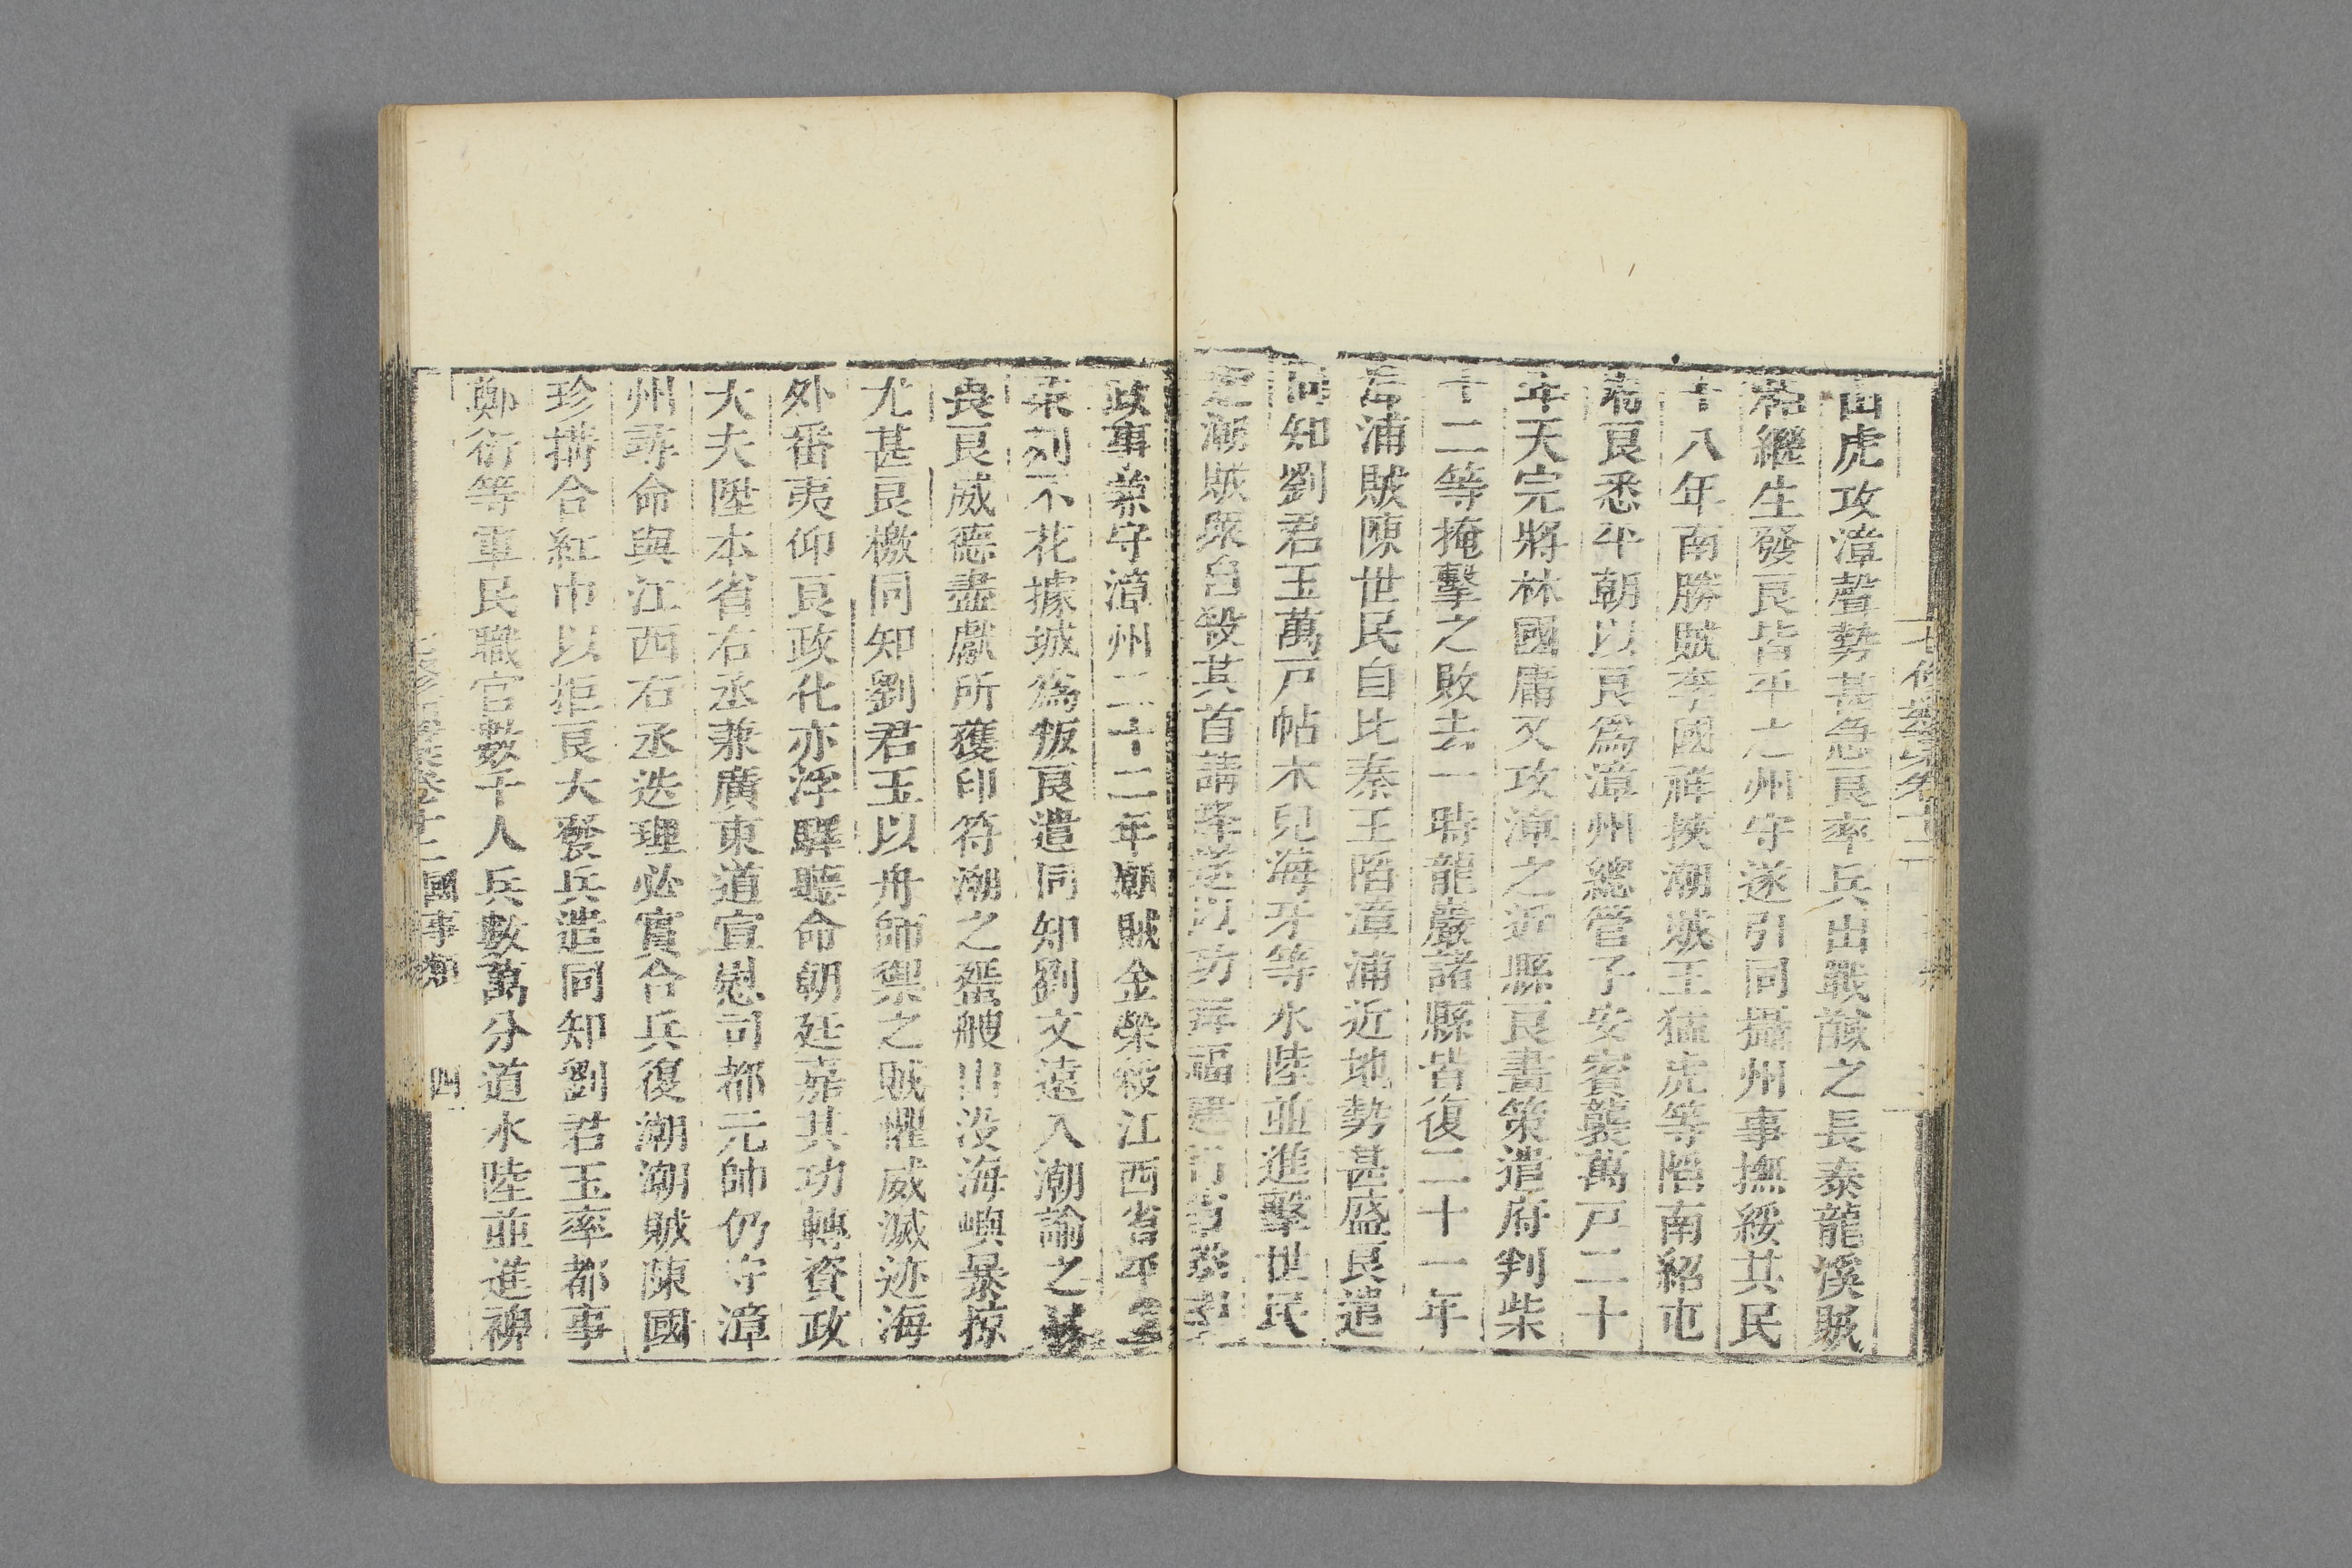 七修類藁卷十二
山虎攻漳聲勢甚急良率兵出戰馘之長泰龍溪賊
縱生發良皆平之州守遂引同攝州事撫綏其民
十八年南勝賊李國祥挾潮賊王猛虎等陷南紹屯
良悉平朝以良為漳州總管子安賓襲萬戸二十
年天完將林國庸又攻漳之近縣良畫策遣府判柴
十二等掩擊之敗去一時龍巖諸縣皆復二十一年
浦賊陳世民自比秦王陷漳浦近地勢甚盛良遣
同知劉君玉萬戸帖木兒海牙等水陸並進擊世民
潮賊眾自殺其首請降
政事兼守漳州二十二年潮賊金榮
江西省平
列不花據城為叛良遣同知劉文遠入潮諭之
良威德盡獻所獲印符潮之蜑艘出没海嶼暴掠
尤甚良檄同知劉君玉以舟師禦之賊懼威滅迹海
外番夷仰良政化亦浮驛聽命朝廷嘉其功轉資政
大夫陞本省右丞兼廣東道宣慰司都元帥仍守漳
州尋命與江西右丞迭理必實合兵復潮潮賊陳國
珍搆合紅巾以拒良大發兵遣同知劉君玉率都事
鄭衍等軍民職官數千人兵數萬分道水陸並進神
卷十二 國事類 四